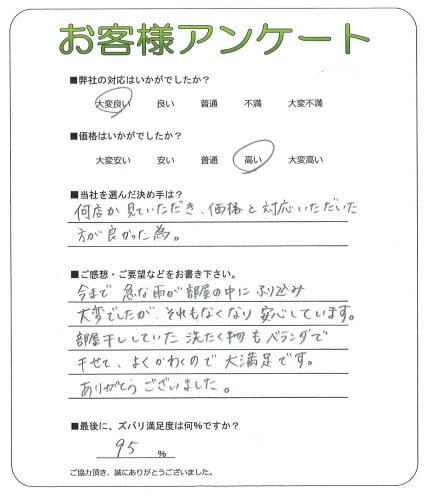 お客様アンケート
■弊社の対応はいかがでしたか？
大変良い 良い 普通 不満 大変不満
■価格はいかがでしたか？
大変安い 安い 普通 高い 大変高い
■当社を選んだ決め手は？
何店か見ていただき、価格と対応いただいた
方が良かった為。
■ご感想・ご要望などをお書き下さい。
今まで急な雨が部屋の中にふり込み
大変でしたが、それもなくなり安心しています。
部屋干ししていた洗たく物もベランダで
干せて、よくかわくので大満足です。
ありがとうございました。
■最後に、ズバリ満足度は何％ですか？
95 %
ご協力頂き、誠にありがとうございました。